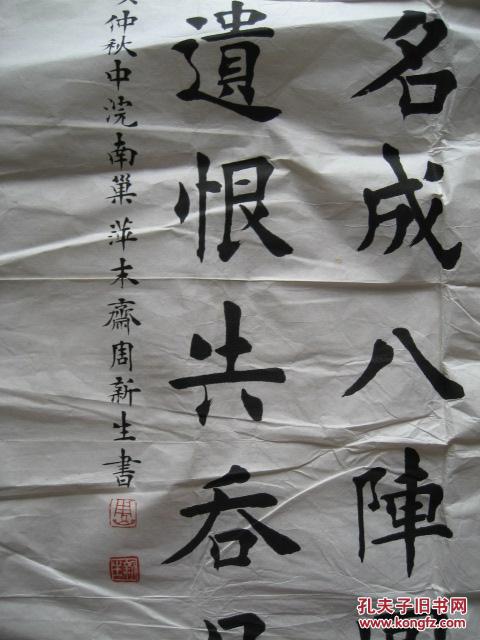 名成八陣
遺恨失吞
仲秋中浣南巢萍末齋周新生書
周
新生
孔夫子旧书网
www.kongfz.com